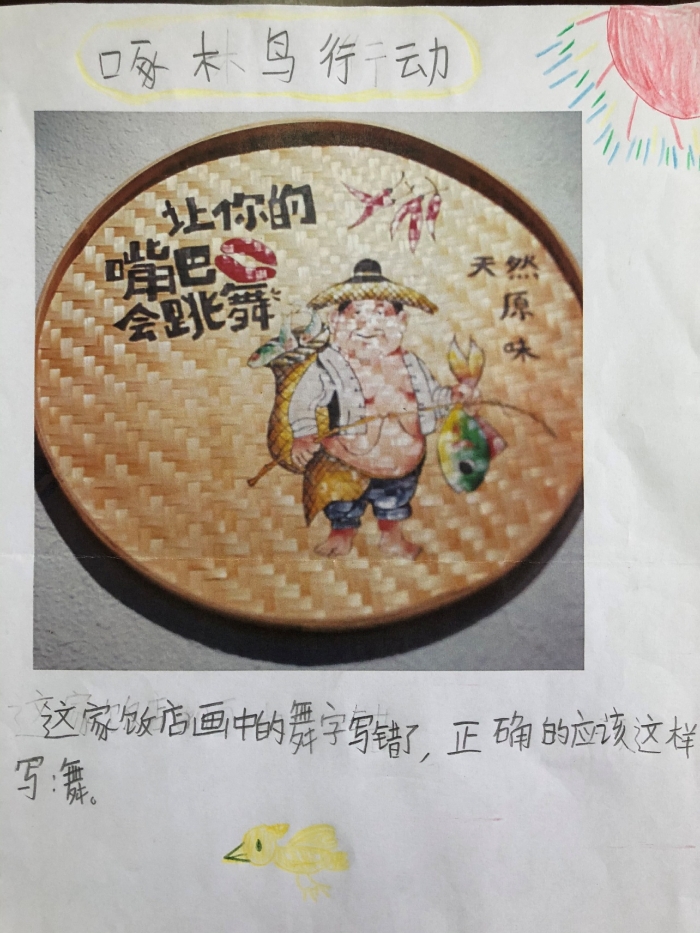 啄木鸟行动
让你的
嘴巴
会跳舞
天然
原
味
这家饭店画中的舞字写错了，正确的应该这样
写：舞。